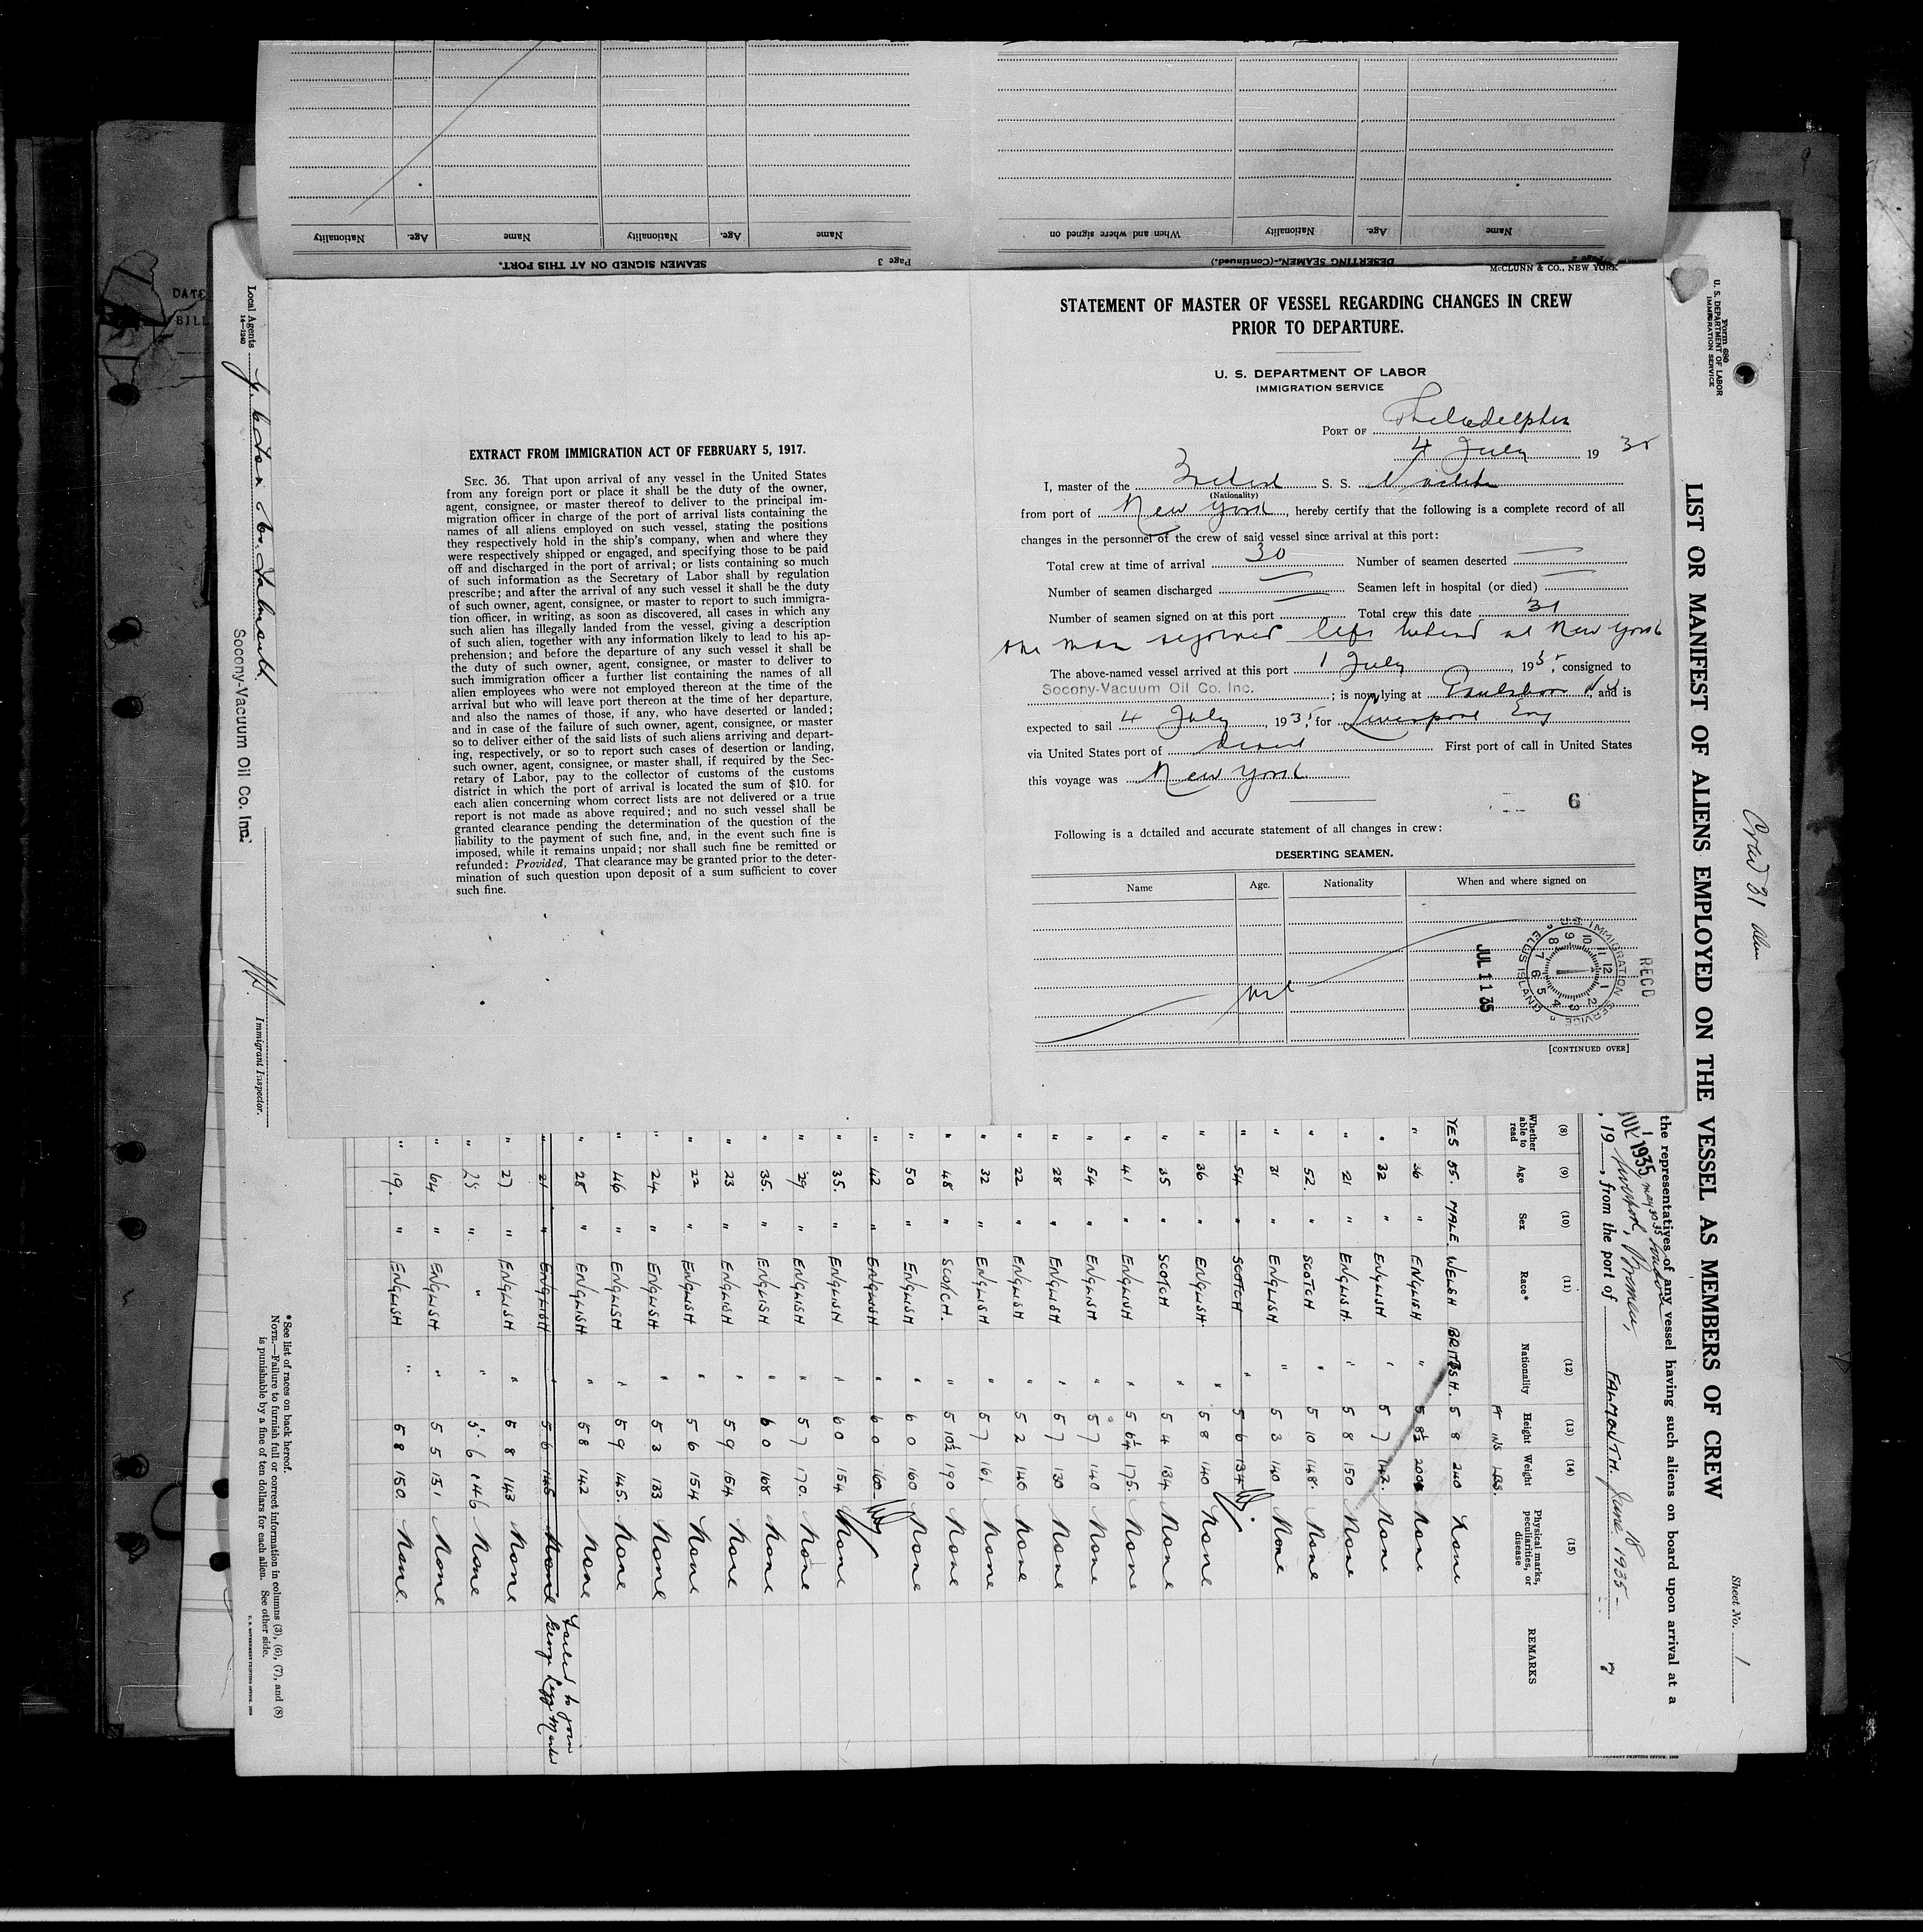 McCLUNN & CO., NEW YORK
STATEMENT OF MASTER OF VESSEL REGARDING CHANGES IN CREW
PRIOR TO DEPARTURE.
U. S. DEPARTMENT OF LABOR
IMMIGRATION SERVICE
PORT OF Philadelphia
4 July 1935
I, master of the British S. S.
(Nationality)
from port of New York, hereby certify that the following is a complete record of all
changes in the personnel of the crew of said vessel since arrival at this port:
Total crew at time of arrival 30 Number of seamen deserted —
Number of seamen discharged — Seamen left in hospital (or died) —
Number of seamen signed on at this port — Total crew this date 31
one man rejoined left behind at New York
The above-named vessel arrived at this port 1 July, 1935, consigned to
Socony-Vacuum Oil Co. Inc. ; is now lying at Paulsboro NJ, and is
expected to sail 4 July, 1935, for Liverpool Eng
via United States port of direct First port of call in United States
this voyage was New York
6
Following is a detailed and accurate statement of all changes in crew:
DESERTING SEAMEN.
Name Age. Nationality When and where signed on
nil
U.S. IMMIGRATION SERVICE ELLIS ISLAND
RECD
JUL 11 35
[CONTINUED OVER]
EXTRACT FROM IMMIGRATION ACT OF FEBRUARY 5, 1917.
SEC. 36. That upon arrival of any vessel in the United States
from any foreign port or place it shall be the duty of the owner,
agent, consignee, or master thereof to deliver to the principal im-
migration officer in charge of the port of arrival lists containing the
names of all aliens employed on such vessel, stating the positions
they respectively hold in the ship's company, when and where they
were respectively shipped or engaged, and specifying those to be paid
off and discharged in the port of arrival; or lists containing so much
of such information as the Secretary of Labor shall by regulation
prescribe; and after the arrival of any such vessel it shall be the duty
of such owner, agent, consignee, or master to report to such immigra-
tion officer, in writing, as soon as discovered, all cases in which any
such alien has illegally landed from the vessel, giving a description
of such alien, together with any information likely to lead to his ap-
prehension; and before the departure of any such vessel it shall be
the duty of such owner, agent, consignee, or master to deliver to
such immigration officer a further list containing the names of all
alien employees who were not employed thereon at the time of the
arrival but who will leave port thereon at the time of her departure,
and also the names of those, if any, who have deserted or landed;
and in case of the failure of such owner, agent, consignee, or master
so to deliver either of the said lists of such aliens arriving and depart-
ing, respectively, or so to report such cases of desertion or landing,
such owner, agent, consignee, or master shall, if required by the Sec-
retary of Labor, pay to the collector of customs of the customs
district in which the port of arrival is located the sum of $10. for
each alien concerning whom correct lists are not delivered or a true
report is not made as above required; and no such vessel shall be
granted clearance pending the determination of the question of the
liability to the payment of such fine, and, in the event such fine is
imposed, while it remains unpaid; nor shall such fine be remitted or
refunded: Provided, That clearance may be granted prior to the deter-
mination of such question upon deposit of a sum sufficient to cover
such fine.
Page 3 SEAMEN SIGNED ON AT THIS PORT.
Name Age. Nationality Name Age. Nationality
DESERTING SEAMEN.—(Continued.)
Name Age. Nationality When and where signed on
DATE
BILL
Form 680
U. S. DEPARTMENT OF LABOR
IMMIGRATION SERVICE
Crew 31
Sheet No. 1
LIST OR MANIFEST OF ALIENS EMPLOYED ON THE VESSEL AS MEMBERS OF CREW
the representatives of any vessel having such aliens on board upon arrival at a
1 1935
, 19 , from the port of FALMOUTH. June 18 1935
(8) (9) (10) (11) (12) (13) (14) (15)
Whether able to read Age Sex Race* Nationality Height Weight Physical marks, peculiarities, or disease REMARKS
FT INS LBS.
YES 55. MALE WELSH BRITISH. 5 8 240 None
" 36 " ENGLISH " 5 8½ 200 None
" 32 " ENGLISH " 5 7 142. None
" 21 " ENGLISH. " 5 8 150 None
" 52. " SCOTCH " 5 10 148. None
" 31 " ENGLISH " 5 3 140 None
" 54 " SCOTCH " 5 6 134
" 36 " ENGLISH. " 5 8 140 None
" 35 " SCOTCH " 5 4 134 None
" 41 " ENGLISH " 5 6¼ 175. None
" 54 " ENGLISH " 5 7 140 None
" 28 " ENGLISH " 5 7 130 None
" 22 " ENGLISH " 5 2 140 None
" 32 " ENGLISH " 5 7 161 None
" 48 " SCOTCH. " 5 10½ 190 None
" 50 " ENGLISH " 6 0 160 None
" 42 " ENGLISH " 6 0 160
" 35. " ENGLISH " 6 0 154 None
" 29 " ENGLISH " 5 7 170. None
" 35. " ENGLISH " 6 0 168 None
" 23 " ENGLISH " 5 9 154 None
" 22 " ENGLISH " 5 6 154 None
" 24 " ENGLISH " 5 3 133 None
" 46 " ENGLISH " 5 9 145. None
" 28 " ENGLISH " 5 8 142 None
" 21 " ENGLISH " 5 6 145 None Failed to join
" 27 " ENGLISH " 5 8 143 None
" 25 " " " 5 6 146 None
" 64 " ENGLISH " 5 5 151 None
" 19. " ENGLISH " 5 8 150 None.
*See list of races on back hereof.
NOTE.—Failure to furnish full or correct information in columns (3), (6), (7), and (8)
is punishable by a fine of ten dollars for each alien. See other side.
Local Agents
14—1240
Socony-Vacuum Oil Co. Inc.
Immigrant Inspector.